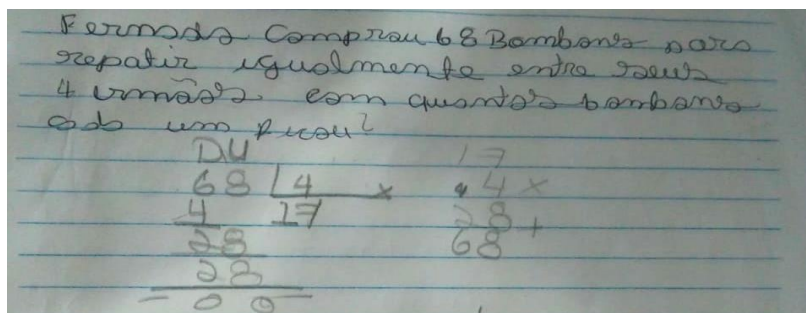 Fernanda Comprou 68 Bombons para
repatir igualmente entre seus
4 irmãos com quantos bombons
cada um ficou?
DU 17
68 4 x 4 x
4 17 28 +
28 68
28
- 00